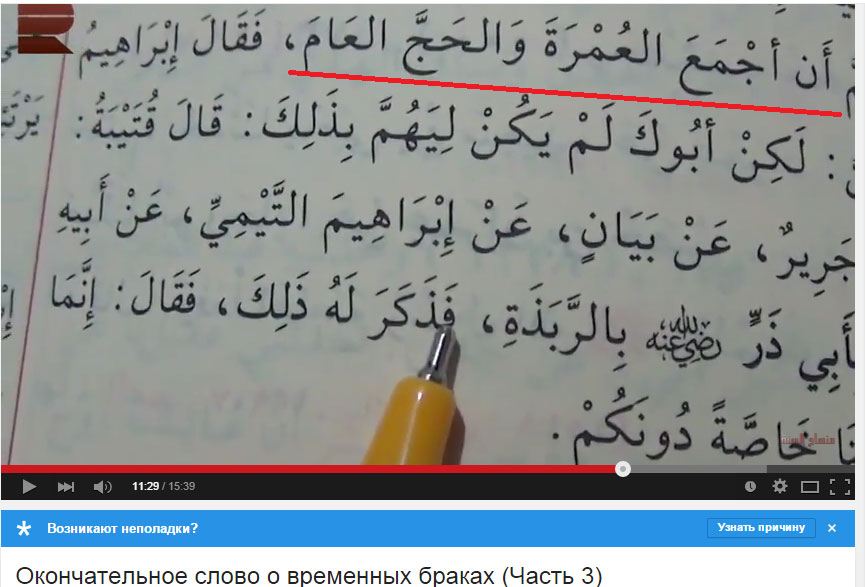 أَن أجْمَعَ العُمْرَةَ وَالحَجَّ العَامَ، فَقَالَ إِبْرَاهِيمُ
: لَكِنْ أبُوكَ لَمْ يَكُنْ لِيَهُمَّ بِذَلِكَ: قَالَ قُتَيْبَةُ:
جَرِيرٌ، عَنْ بَيَانٍ، عَنْ إِبْرَاهِيمَ التَّيْمِيِّ، عَنْ أَبِيهِ
بِأَبِي ذَرٍّ رضي الله عنه بِالرَّبَذَةِ، فَذَكَرَ لَهُ ذَلِكَ، فَقَالَ: إِنَّمَا
خَاصَّةً دُونَكُمْ.
11:29 / 15:39
Возникают неполадки?
Узнать причину
Окончательное слово о временных браках (Часть 3)